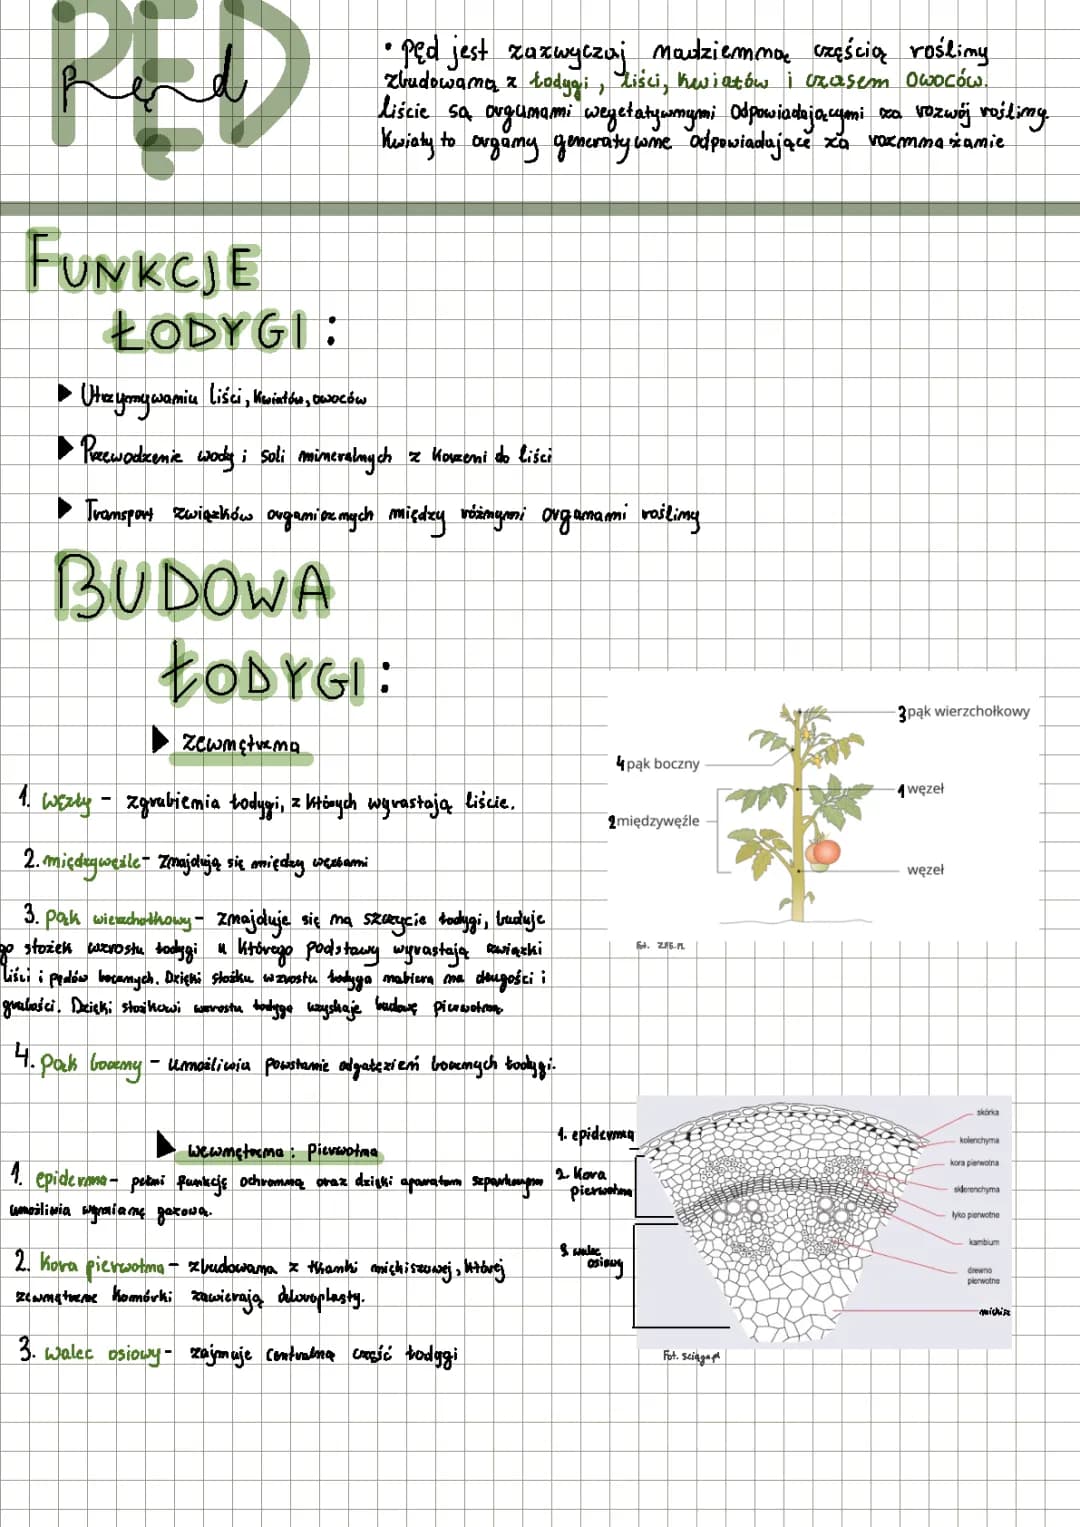 PĘD
Pęd
• Pęd jest zazwyczaj nadziemną częścią rośliny
zbudowaną z łodygi, liści, kwiatów i czasem owoców.
liście są organami wegetatywnymi odpowiadającymi za rozwój rośliny.
Kwiaty to organy generatywne odpowiadające za rozmnażanie
FUNKCJE
ŁODYGI:
▶ Utrzymywaniu liści, kwiatów, owoców
▶ Przewodzenie wody i soli mineralnych z korzeni do liści
▶ Transport związków organicznych między różnymi organami rośliny
BUDOWA
ŁODYGI:
▶ zewnętrzna
1. węzły - zgrubienia łodygi, z których wyrastają liście.
2. międzywęźle - znajdują się między węzłami
3. pąk wierzchołkowy - znajduje się na szczycie łodygi, buduje
go stożek wzrostu łodygi u którego podstawy wyrastają zwiążki
liści i pędów bocznych. Dzięki stożku wzrostu łodyga nabiera na długości i
grubości. Dzięki stożkowi wzrostu łodyga uzyskuje budowę pierwotną.
4. pąk boczny - umożliwia powstanie odgałęzień bocznych łodygi.
3 pąk wierzchołkowy
4 pąk boczny
1 węzeł
2 międzywęźle
węzeł
fot. zpe.pl
▶ wewnętrzna: Pierwotna
1. epiderma - pełni funkcję ochronną oraz dzięki aparatom szparkowym
umożliwia wymianę gazową.
2. Kora pierwotna - zbudowana z tkanki miękiszowej, której
zewnętrzne komórki zawierają chloroplasty.
3. walec osiowy - zajmuje centralną część łodygi
1. epiderma
2. Kora
pierwotna
3. walec
osiowy
skórka
kolenchyma
kora pierwotna
sklerenchyma
łyko pierwotne
kambium
drewno
pierwotne
miękisz
Fot. sciaga.pl